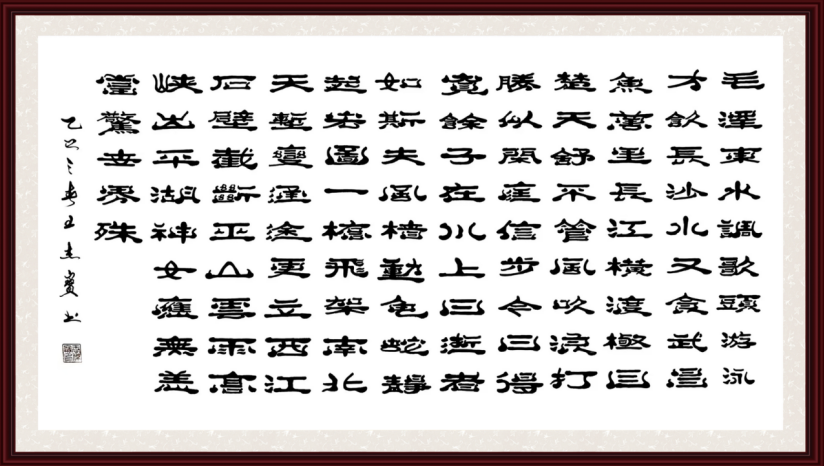 毛澤東水調歌頭游泳
才飲長沙水又食武昌
魚萬里長江橫渡極目
楚天舒不管風吹浪打
勝似閑庭信步今日得
寬餘子在川上曰逝者
如斯夫風檣動龜蛇靜
起宏圖一橋飛架南北
天塹變通途更立西江
石壁截斷巫山雲雨高
峽出平湖神女應無恙
當驚世界殊
乙巳之春王志书